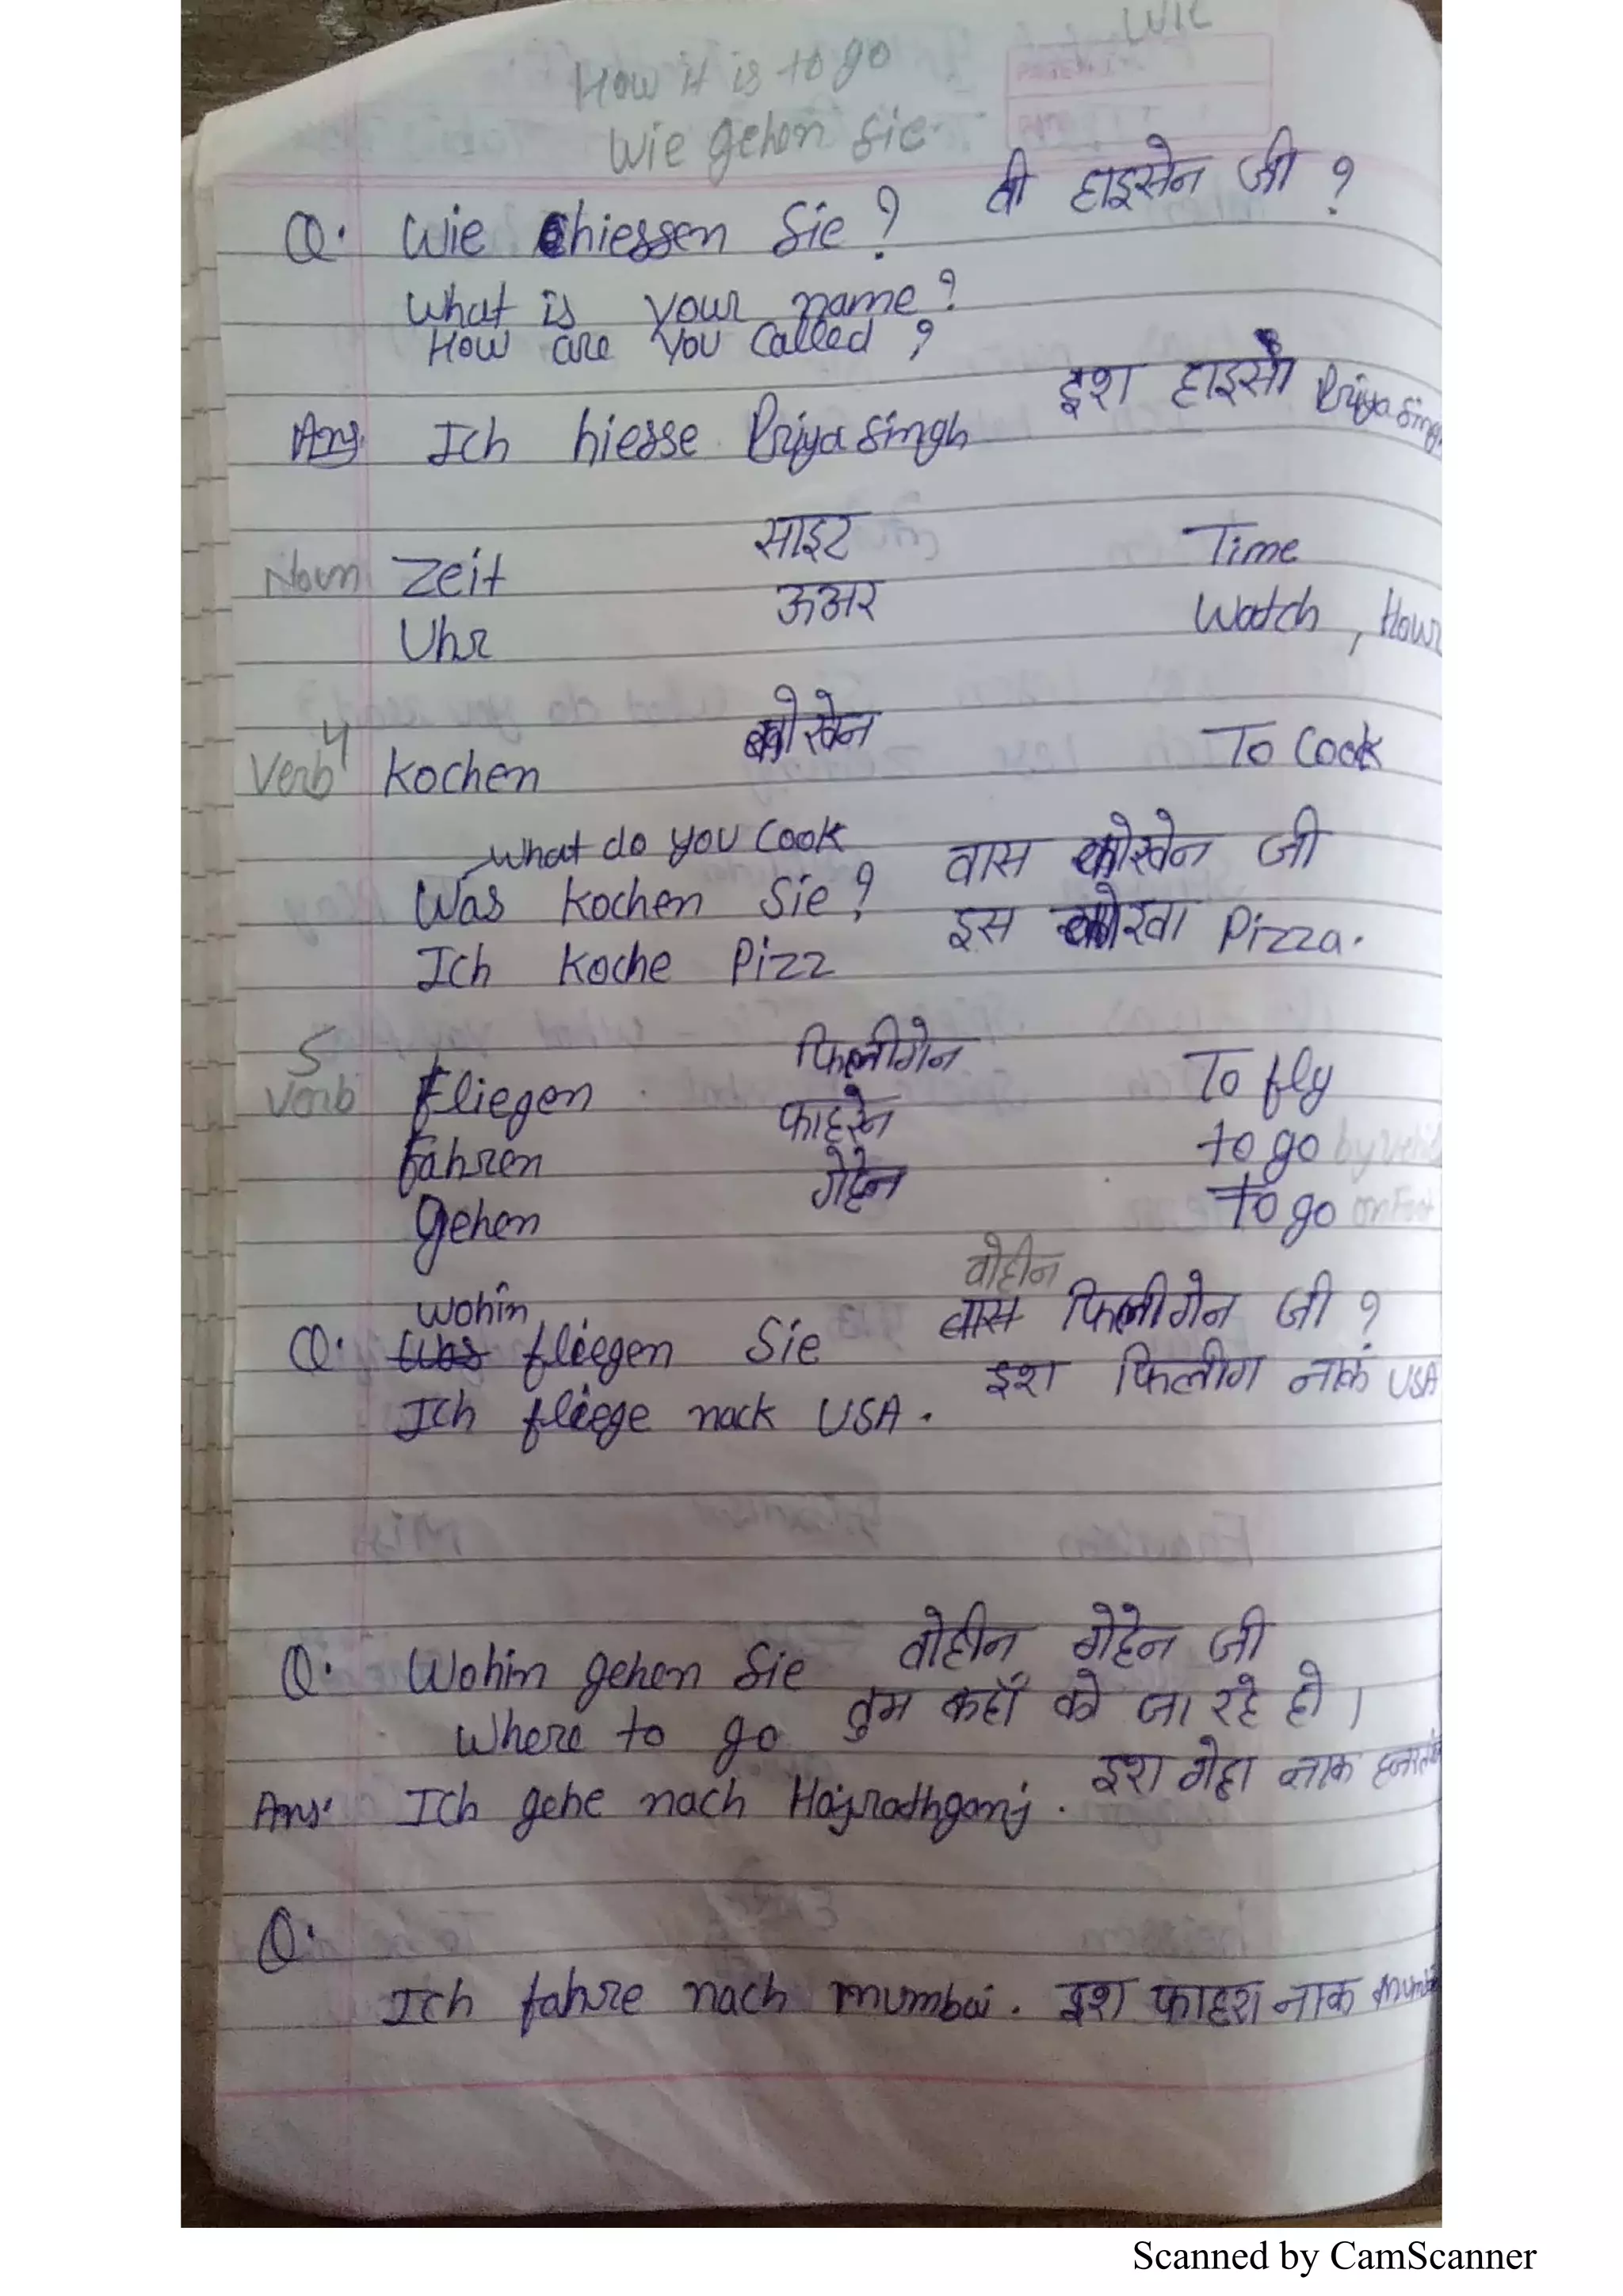 How it is to go
Wie gehen Sie.
Q. Wie chiessen Sie? वी हाइसेन जी ?
What is your name?
How are you called ?
Ans. Ich hiesse Priya Singh इश हाइसे Priya Singh
Noun Zeit साइट Time
Uhr ऊअर Watch, Hour
4
Verb kochen कोखेन To Cook
What do you cook
Was kochen Sie? वास कोखेन जी
Ich koche Pizz इस कोखा Pizza.
5
Verb fliegen फिलीगेन To fly
fahren फाहरेन to go by
Gehen गेहेन to go on Foot
वोहीन
Wohin
Q. Was fliegen Sie वास फिलीगेन जी ?
Ich fliege nack USA. इश फिलीग नाक USA
Q. Wohin gehen Sie वोहीन गेहेन जी
Where to go तुम कहाँ को जा रहे हो ।
Ans. Ich gehe nach Hajrathganj. इश गेहा नाक
Q.
Ich fahre nach mumbai. इश फाहरा नाक mumbai
Scanned by CamScanner